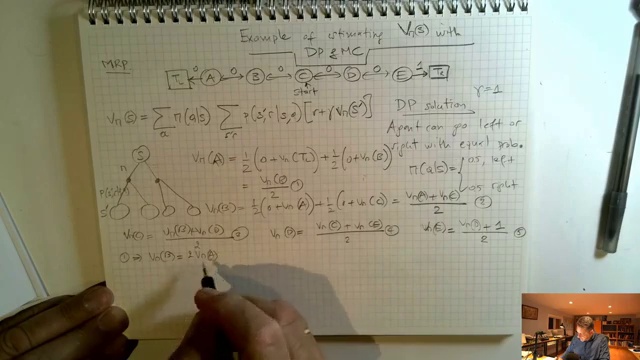 Example of estimating Vπ(s) with
DP & MC
MRP
T_L ←0 A ←0→ B ←0→ C ←0→ D ←0→ E 1→ T_R
start
Vπ(s) = Σ_a π(a|s) Σ_s'r p(s',r|s,a) [r+γVπ(s')]
DP solution γ=1
Agent can go left or
right with equal prob.
π(a|s) = { 0.5, left
0.5 right
S
π
s'
Vπ(A) = 1/2 (0+Vπ(T_L)) + 1/2 (0+Vπ(B))
= Vπ(B)/2 ①
Vπ(B) = 1/2 (0+Vπ(A)) + 1/2 (0+Vπ(C)) = (Vπ(A)+Vπ(C))/2 ②
Vπ(C) = (Vπ(B)+Vπ(D))/2 ③ Vπ(D) = (Vπ(C)+Vπ(E))/2 ④ Vπ(E) = (Vπ(D)+1)/2 ⑤
① ⇒ Vπ(B) = 2Vπ(A)